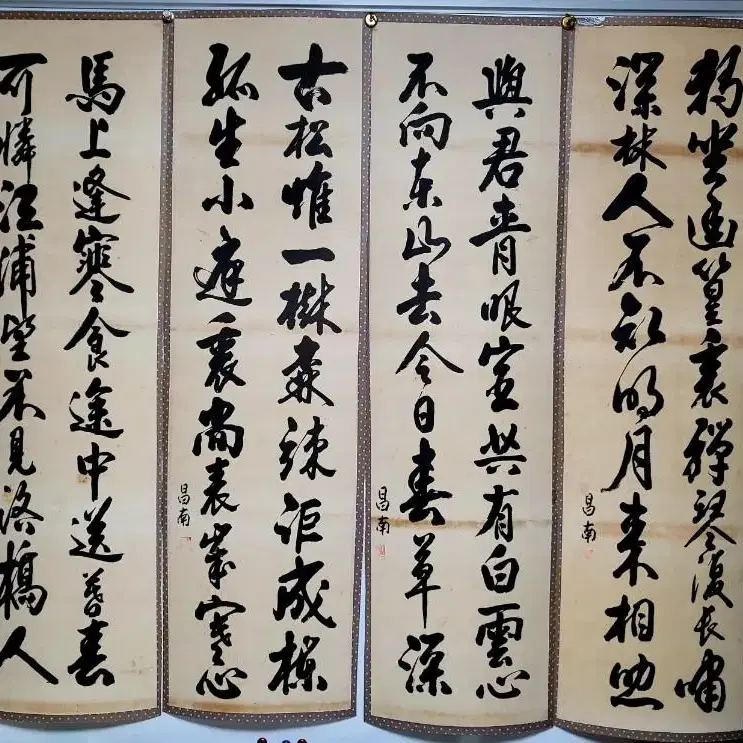 獨坐幽篁裏彈琴復長嘯
深林人不知明月來相照
昌南
與君青眼客共有白雲心
不向東山去今日春草深
昌南
古松惟一樹森竦詎成林
孤生小庭裏尚表歲寒心
昌南
馬上逢寒食途中送暮春
可憐江浦望不見洛橋人